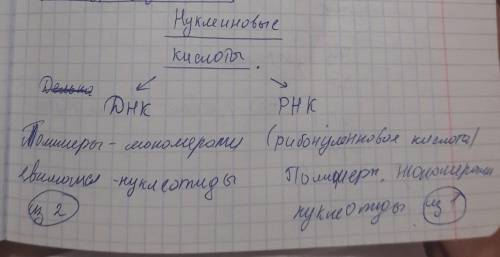 Нуклеиновые
кислоты.
ДНК РНК
Полимеры - мономерами (рибонулеиновое кислота)
являются - нуклеотиды Полимеры. Мономерами
из 2 нуклеотиды из 1